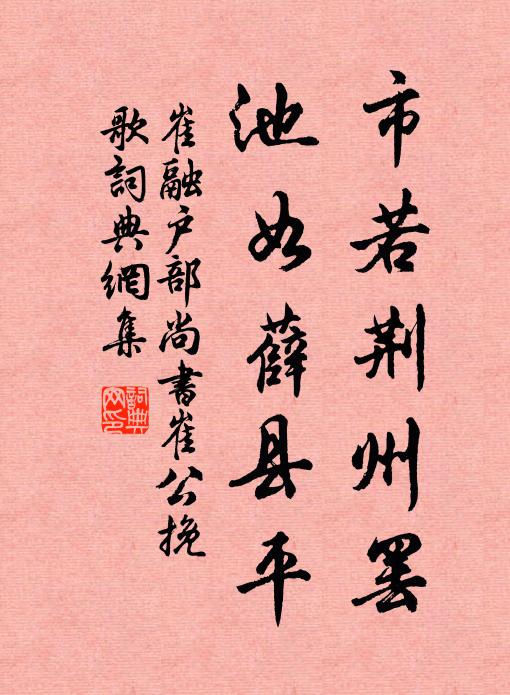 市若荆州罢
池如薛县平
崔融户部尚書崔公挽
歌詞典網集
詞典
网印